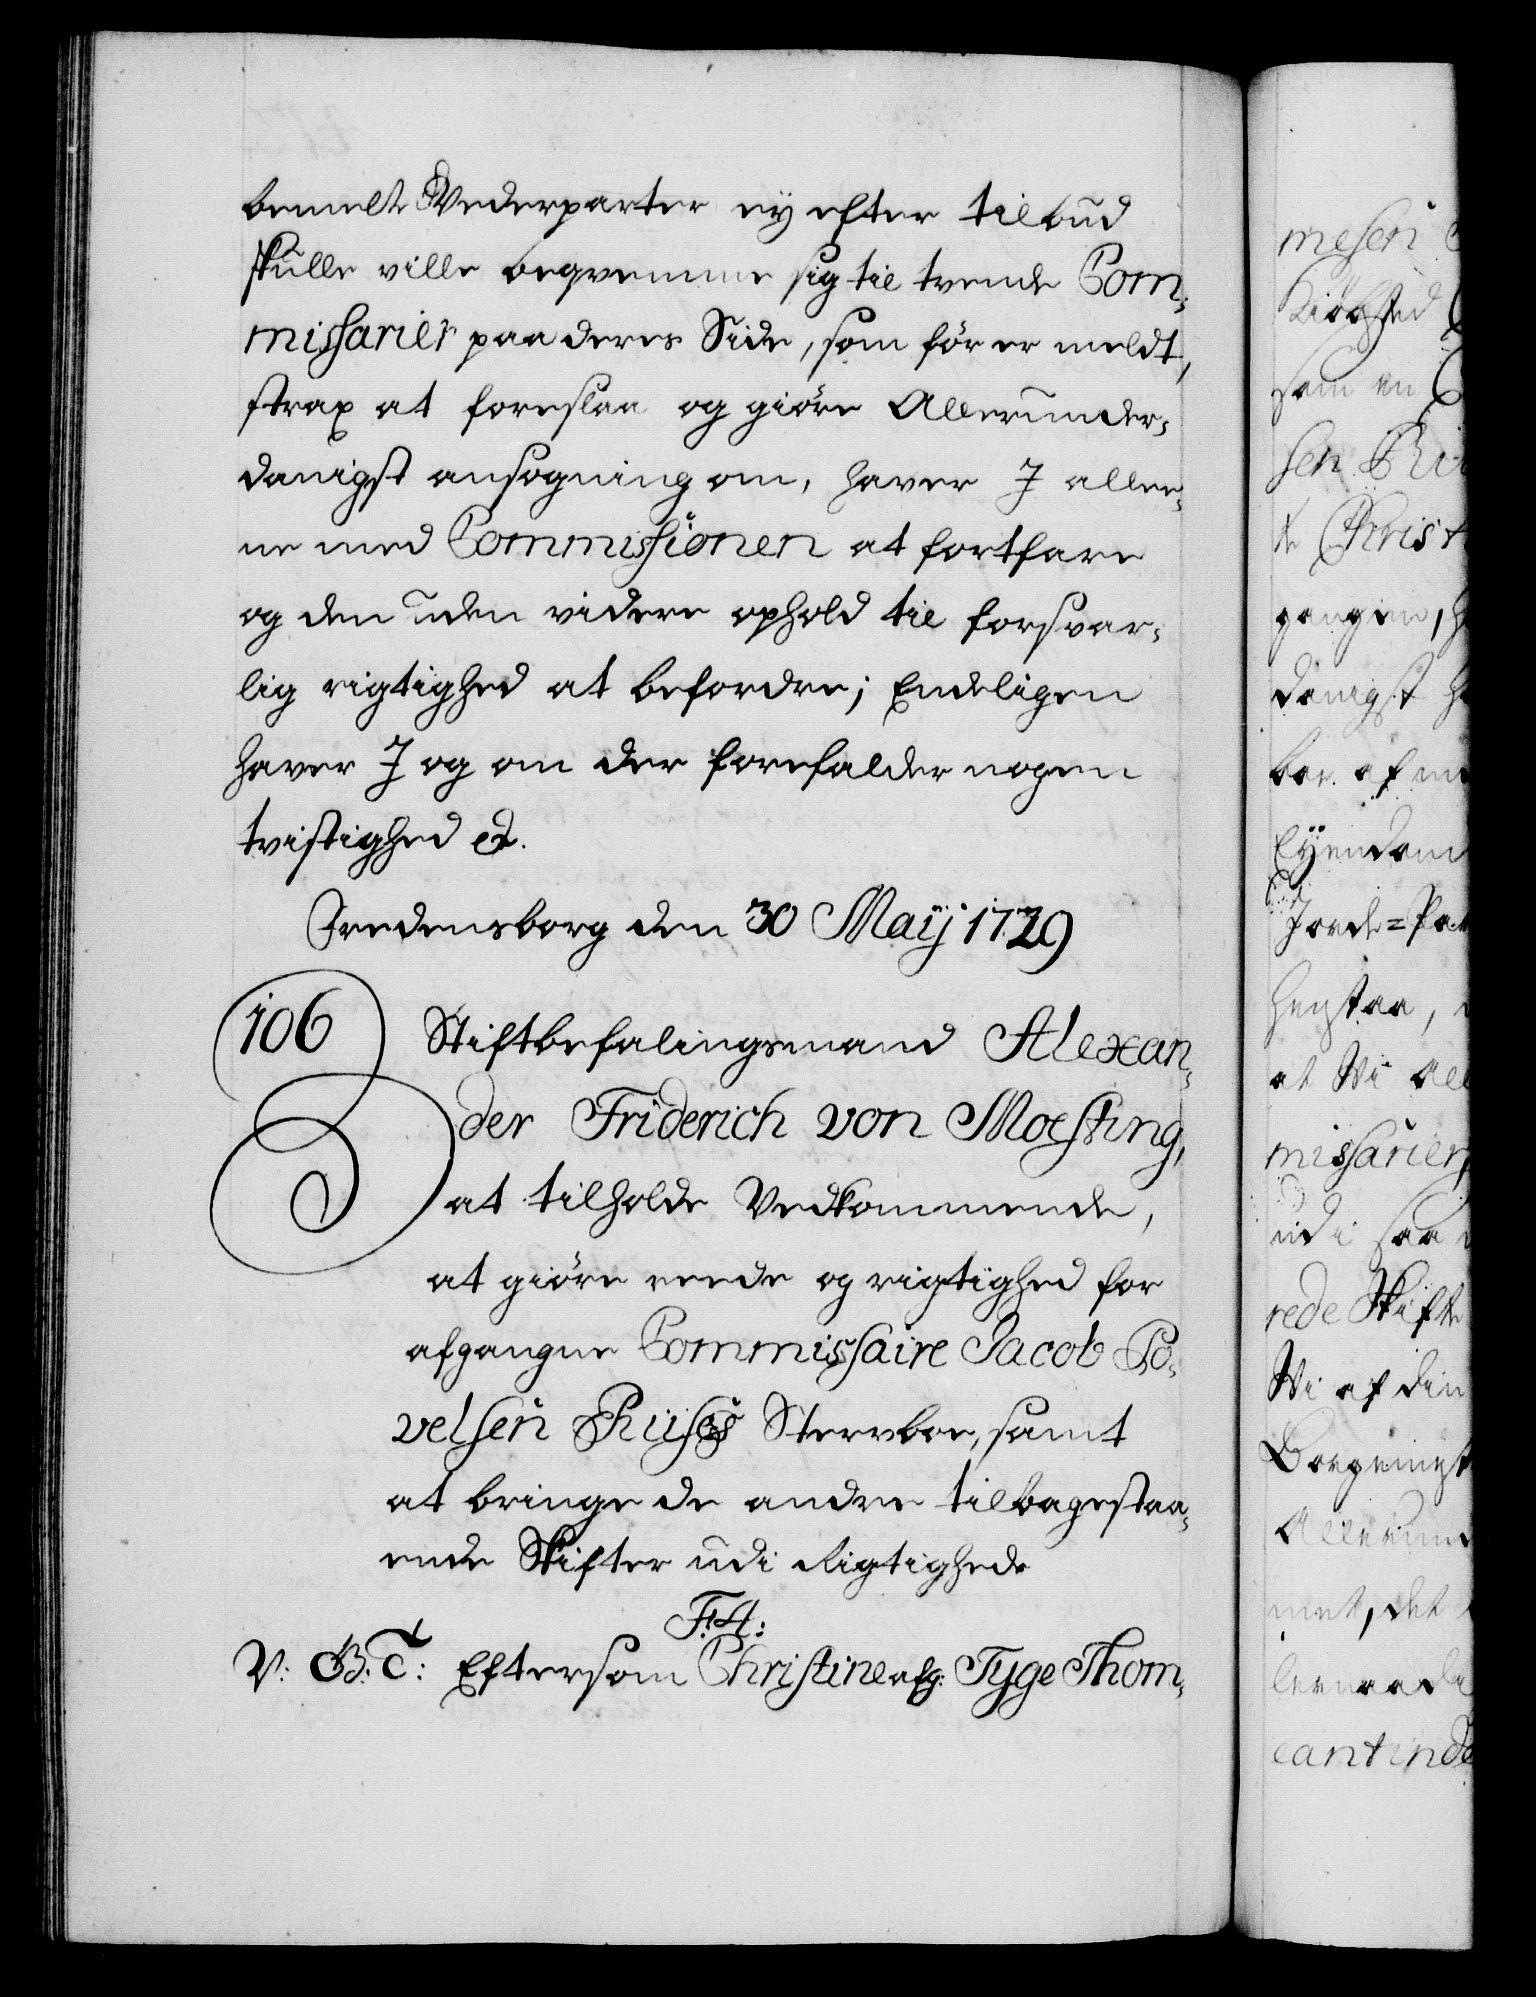 bemelte Wederparter ey efter tilbud
skulle ville beqvemme sig til trende Com-
missarier paa deres Side, som før er meldt,
strax at foreslaa og giøre Allerunder-
danigst ansøgning om, haver I alle-
ne med Commissionen at fortfare
og den uden videre ophold til forsvar-
lig rigtighed at befordre; Endeligen
haver I og om der forefalder nogen
tvistighed etc.
Fredensborg den 30 Maij 1729
106 Stiftbefalingsmand Alexan-
der Friderich von Moesting,
at tilholde Vedkommende,
at giøre reede og rigtighed for
afgangne Commissaire Jacob Po-
velsen Stervboe, samt
at bringe de andre tilbagestaa-
ende Skifter udi Rigtighede
F: 4:
V: G: T: Eftersom Christine afg: Tyge Thom-
mesen
Kiøbsted
som en
sen
te Christ
gangen,
danigst
boe af
Eyendom
Jorde=Pa
henstaa,
at Wi All
missarier
udi saa
rede Skifte
Wi af din
Borgemest
Allerund
met, det
lernaade
cantinde